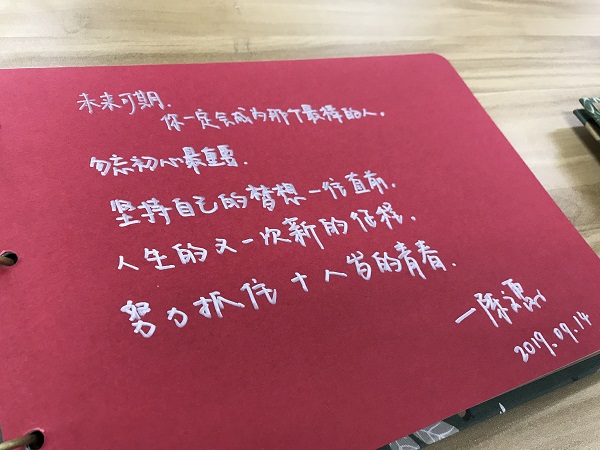 未来可期.
你一定会成为那个最棒的人.
勿忘初心最重要.
坚持自己的梦想一往直前.
人生的又一次新的征程,
努力抓住十八岁的青春.
一陈
2019.09.14